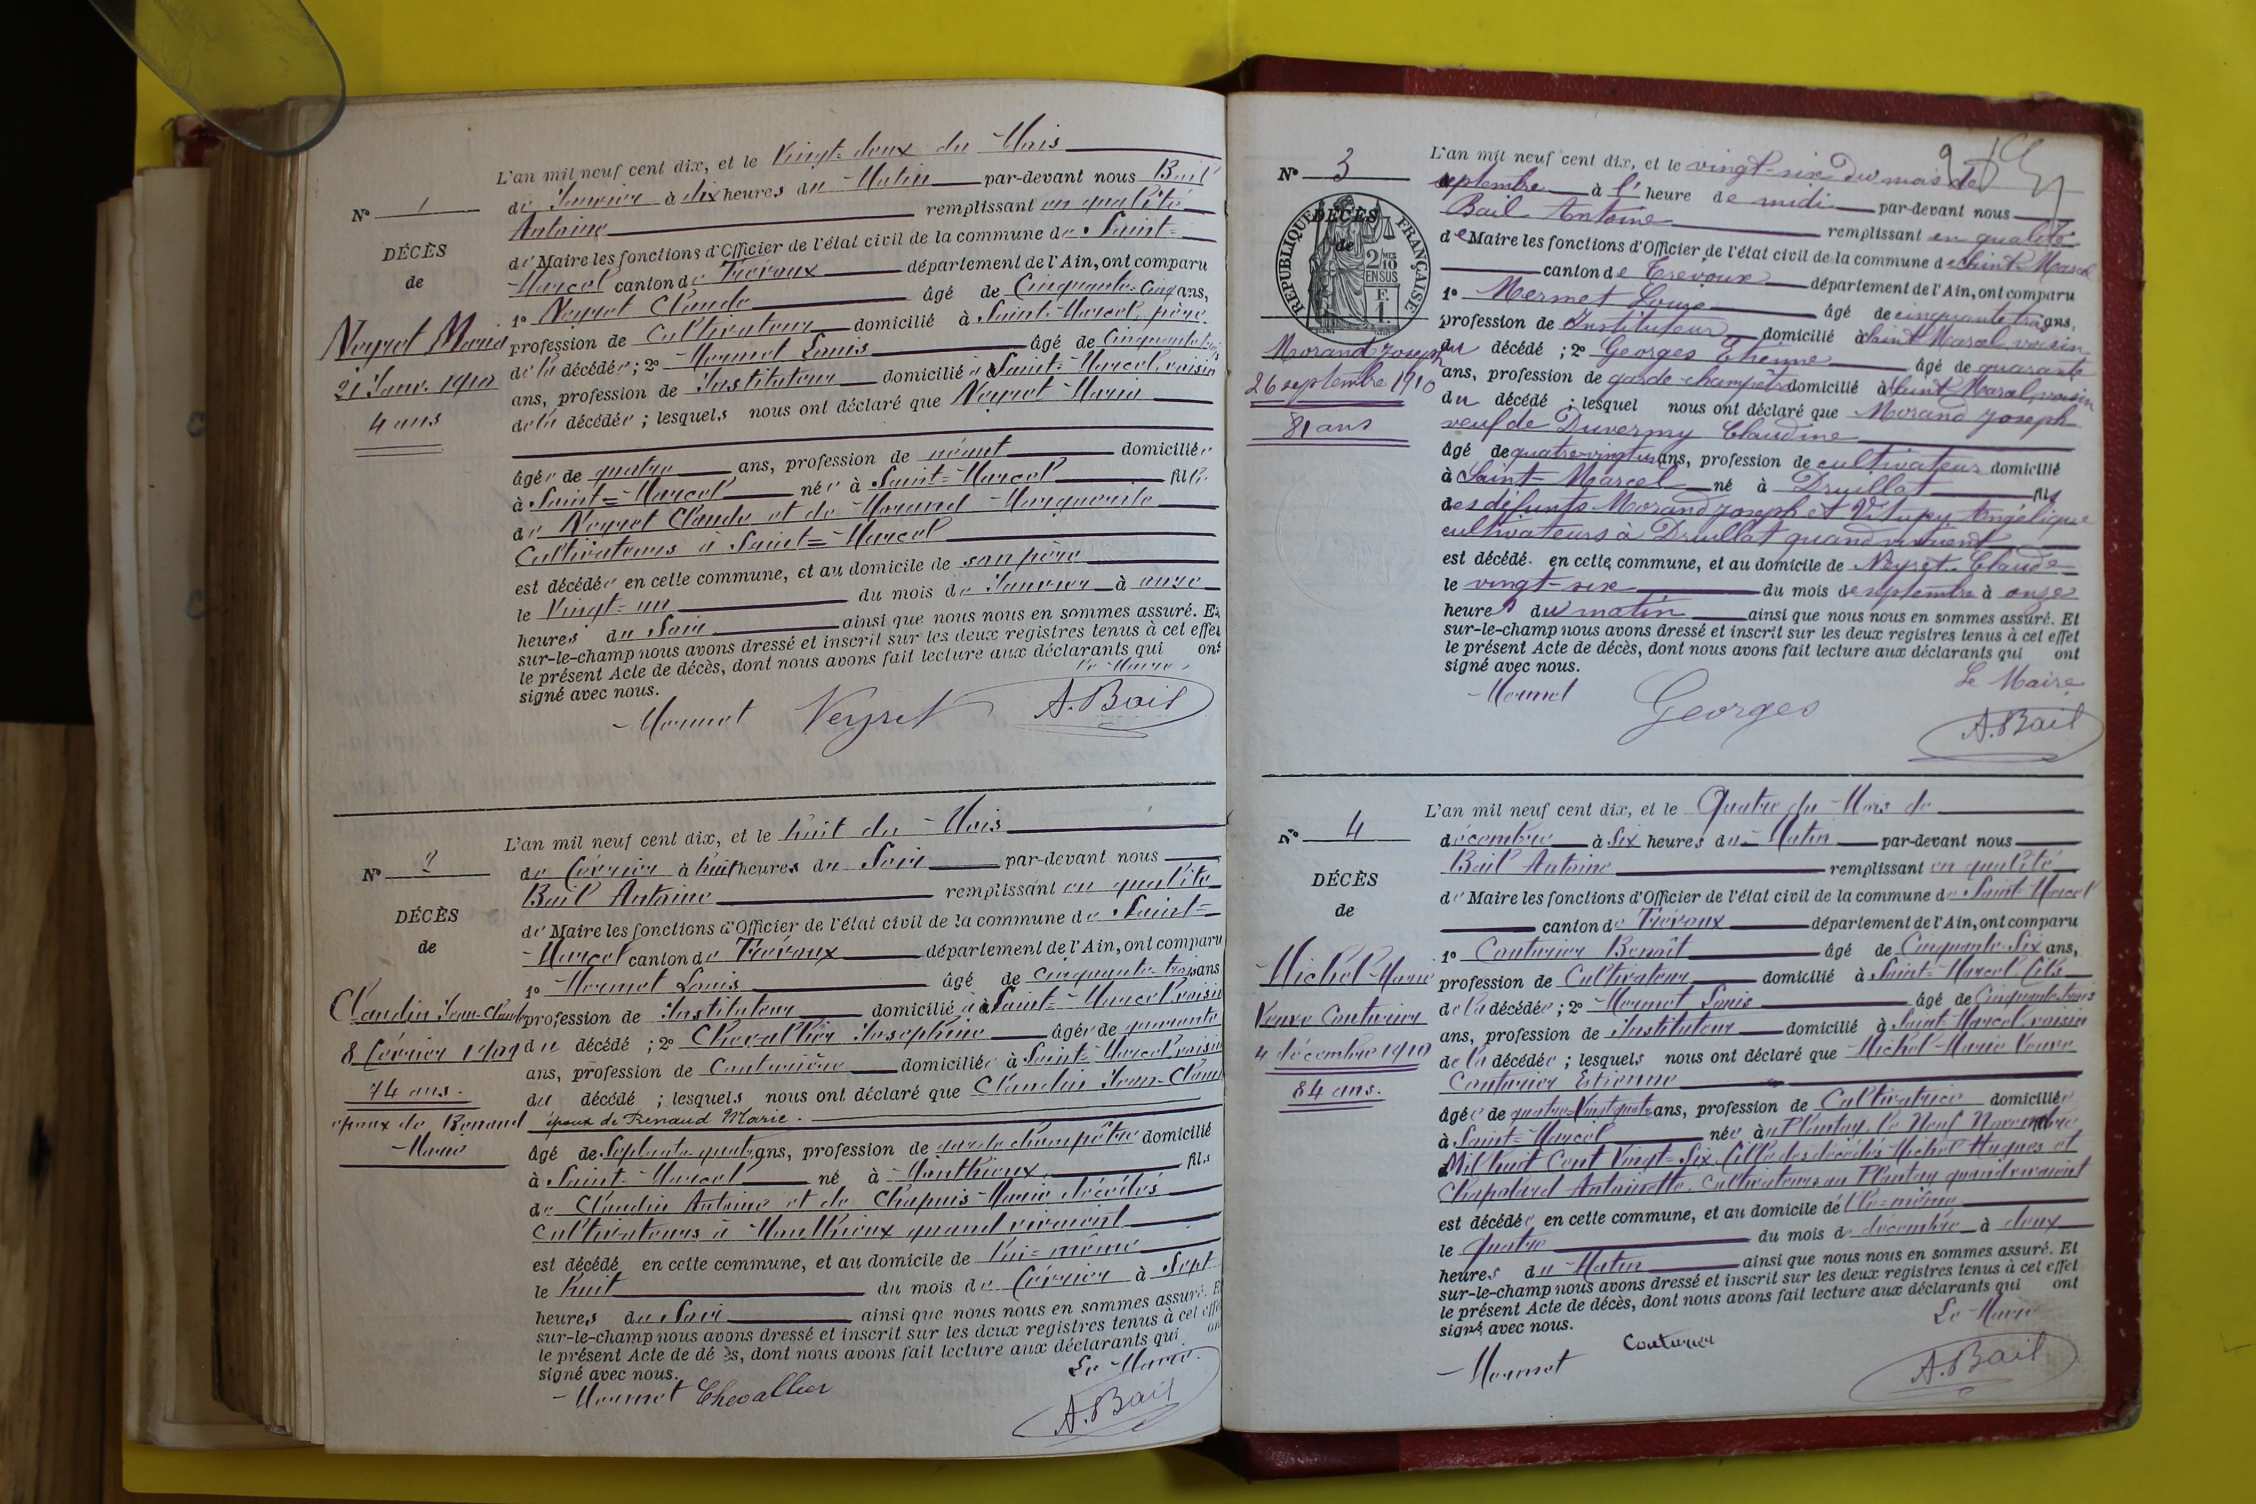 L'an mil neuf cent dix, et le Vingt-deux du Mois
N° 1
de Janvier à dix heures du Matin par-devant nous Bail
Antoine remplissant en qualité
DÉCÈS
de
de Maire les fonctions d'Officier de l'état civil de la commune de Saint-
Marcel canton de Trévoux département de l'Ain, ont comparu
1° Neyret Claude âgé de Cinquante-cinq ans,
Neyret Marie
21 Janv. 1910
4 ans
profession de Cultivateur domicilié à Saint-Marcel, père
de la décédée ; 2° Mermet Louis âgé de Cinquante
ans, profession de Instituteur domicilié à Saint-Marcel, voisin
de la décédée ; lesquels nous ont déclaré que Neyret Marie
âgée de quatre ans, profession de néant domiciliée
à Saint-Marcel née à Saint-Marcel fille
de Neyret Claude et de Morand Marguerite
Cultivateurs à Saint-Marcel
est décédée en cette commune, et au domicile de son père
le Vingt-un du mois de Janvier à onze
heures du Soir ainsi que nous nous en sommes assuré. Et
sur-le-champ nous avons dressé et inscrit sur les deux registres tenus à cet effet
le présent Acte de décès, dont nous avons fait lecture aux déclarants qui ont
signé avec nous.
Le Maire
Mermet Neyret A. Bail
L'an mil neuf cent dix, et le huit du Mois
N° 2
de Février à huit heures du Soir par-devant nous
Bail Antoine remplissant en qualité
DÉCÈS
de
de Maire les fonctions d'Officier de l'état civil de la commune de Saint-
Marcel canton de Trévoux département de l'Ain, ont comparu
1° Mermet Louis âgé de cinquante-trois ans
Claudin Jean-Claude
8 février
74 ans.
époux de Renaud
Marie
profession de Instituteur domicilié à Saint-Marcel, voisin
du décédé ; 2° Chevallier Joséphine âgée de quarante
ans, profession de Couturière domiciliée à Saint-Marcel, voisine
du décédé ; lesquels nous ont déclaré que Claudin Jean-Claud
époux de Renaud Marie.
âgé de Septante-quatre ans, profession de garde champêtre domicilié
à Saint-Marcel né à Monthieux fils
de Claudin Antoine et de Chapuis Marie décédés
Cultivateurs à Monthieux quand vivaient
est décédé en cette commune, et au domicile de lui-même
le huit du mois de Février à Sept
heures du Soir ainsi que nous nous en sommes assuré. Et
sur-le-champ nous avons dressé et inscrit sur les deux registres tenus à cet effet
le présent Acte de décès, dont nous avons fait lecture aux déclarants qui on
signé avec nous.
Le Maire.
Mermet Chevallier A. Bail
N° 3
L'an mil neuf cent dix, et le vingt-six du mois de
septembre à l' heure de midi par-devant nous
Bail Antoine remplissant en qualité
DÉCÈS
de
RÉPUBLIQUE FRANÇAISE
2/10 EN SUS
de Maire les fonctions d'Officier de l'état civil de la commune de Saint-Marcel
canton de Trévoux département de l'Ain, ont comparu
1° Mermet Louis âgé de cinquante trois ans,
Morand Joseph
26 septembre 1910
81 ans
profession de Instituteur domicilié à Saint Marcel, voisin
du décédé ; 2° Georges Etienne âgé de quarante
ans, profession de garde-champêtre domicilié à Saint Marcel, voisin
du décédé ; lesquel nous ont déclaré que Morand Joseph
veuf de Duvermy Claudine
âgé de quatre-vingt-un ans, profession de cultivateur domicilié
à Saint-Marcel né à Druillat fils
des défunts Morand Joseph et Angélique
cultivateurs à Druillat quand vivaient
est décédé en cette commune, et au domicile de Neyret Claude
le vingt-six du mois de septembre à onze
heures du matin ainsi que nous nous en sommes assuré. Et
sur-le-champ nous avons dressé et inscrit sur les deux registres tenus à cet effet
le présent Acte de décès, dont nous avons fait lecture aux déclarants qui ont
signé avec nous.
Le Maire
Mermet Georges A. Bail
L'an mil neuf cent dix, et le Quatre du Mois de
N° 4
décembre à six heures du Matin par-devant nous
Bail Antoine remplissant en qualité
DÉCÈS
de
de Maire les fonctions d'Officier de l'état civil de la commune de Saint-Marcel
canton de Trévoux département de l'Ain, ont comparu
1° Couturier Benoît âgé de Cinquante-Six ans,
Michel Marie
Veuve Couturier
4 décembre 1910
84 ans.
profession de Cultivateur domicilié à Saint-Marcel fils
de la décédée ; 2° Mermet Louis âgé de Cinquante-trois
ans, profession de Instituteur domicilié à Saint-Marcel, voisin
de la décédée ; lesquels nous ont déclaré que Michel Marie Veuve
Couturier Etienne
âgée de quatre-Vingt-quatre ans, profession de Cultivatrice domiciliée
à Saint-Marcel née au Plantay, le Neuf Novembre
Mil huit Cent Vingt-Six, fille des décédés Michel Hugues et
Chapolard Antoinette, Cultivateurs au Plantay quand vivaient
est décédée en cette commune, et au domicile de elle-même
le quatre du mois de décembre à deux
heures du Matin ainsi que nous nous en sommes assuré. Et
sur-le-champ nous avons dressé et inscrit sur les deux registres tenus à cet effet
le présent Acte de décès, dont nous avons fait lecture aux déclarants qui ont
signé avec nous.
Le Maire
Mermet Couturier A. Bail